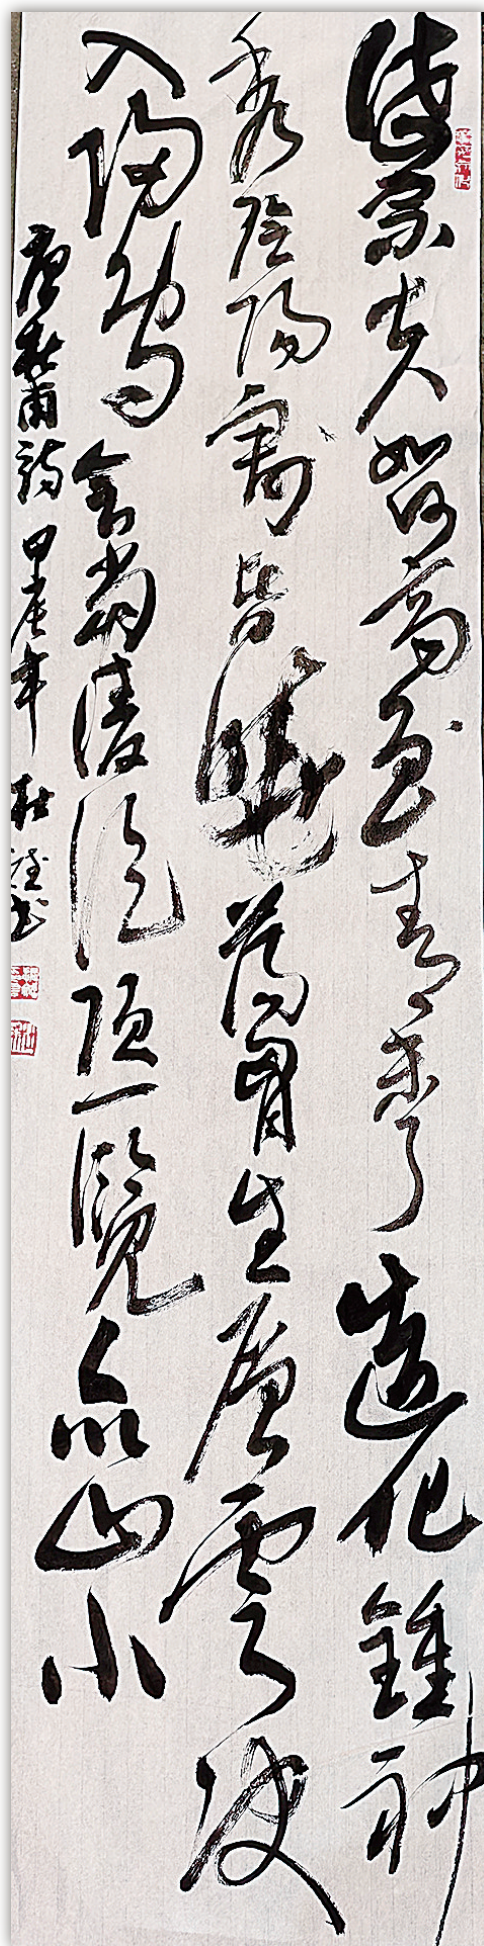 岱宗夫如何齊魯青未了造化鍾神
秀陰陽割昏曉蕩胸生層雲決
入歸鳥會當凌絕頂一覽众山小
唐杜甫詩 甲辰年 書